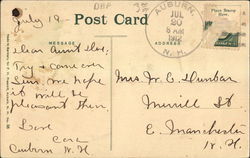 July 19
Post Card
AUBURN,
JUL
20
8 AM
1912
N. H.
Place Stamp
Here
MESSAGE
ADDRESS
Dear Aunt
Try & come over
Sun. we hope
it will be
pleasant then
Love
Cora
Auburn N.H.
Mrs. W. E. Dunbar
Merrill St
E. Manchester
N. H.